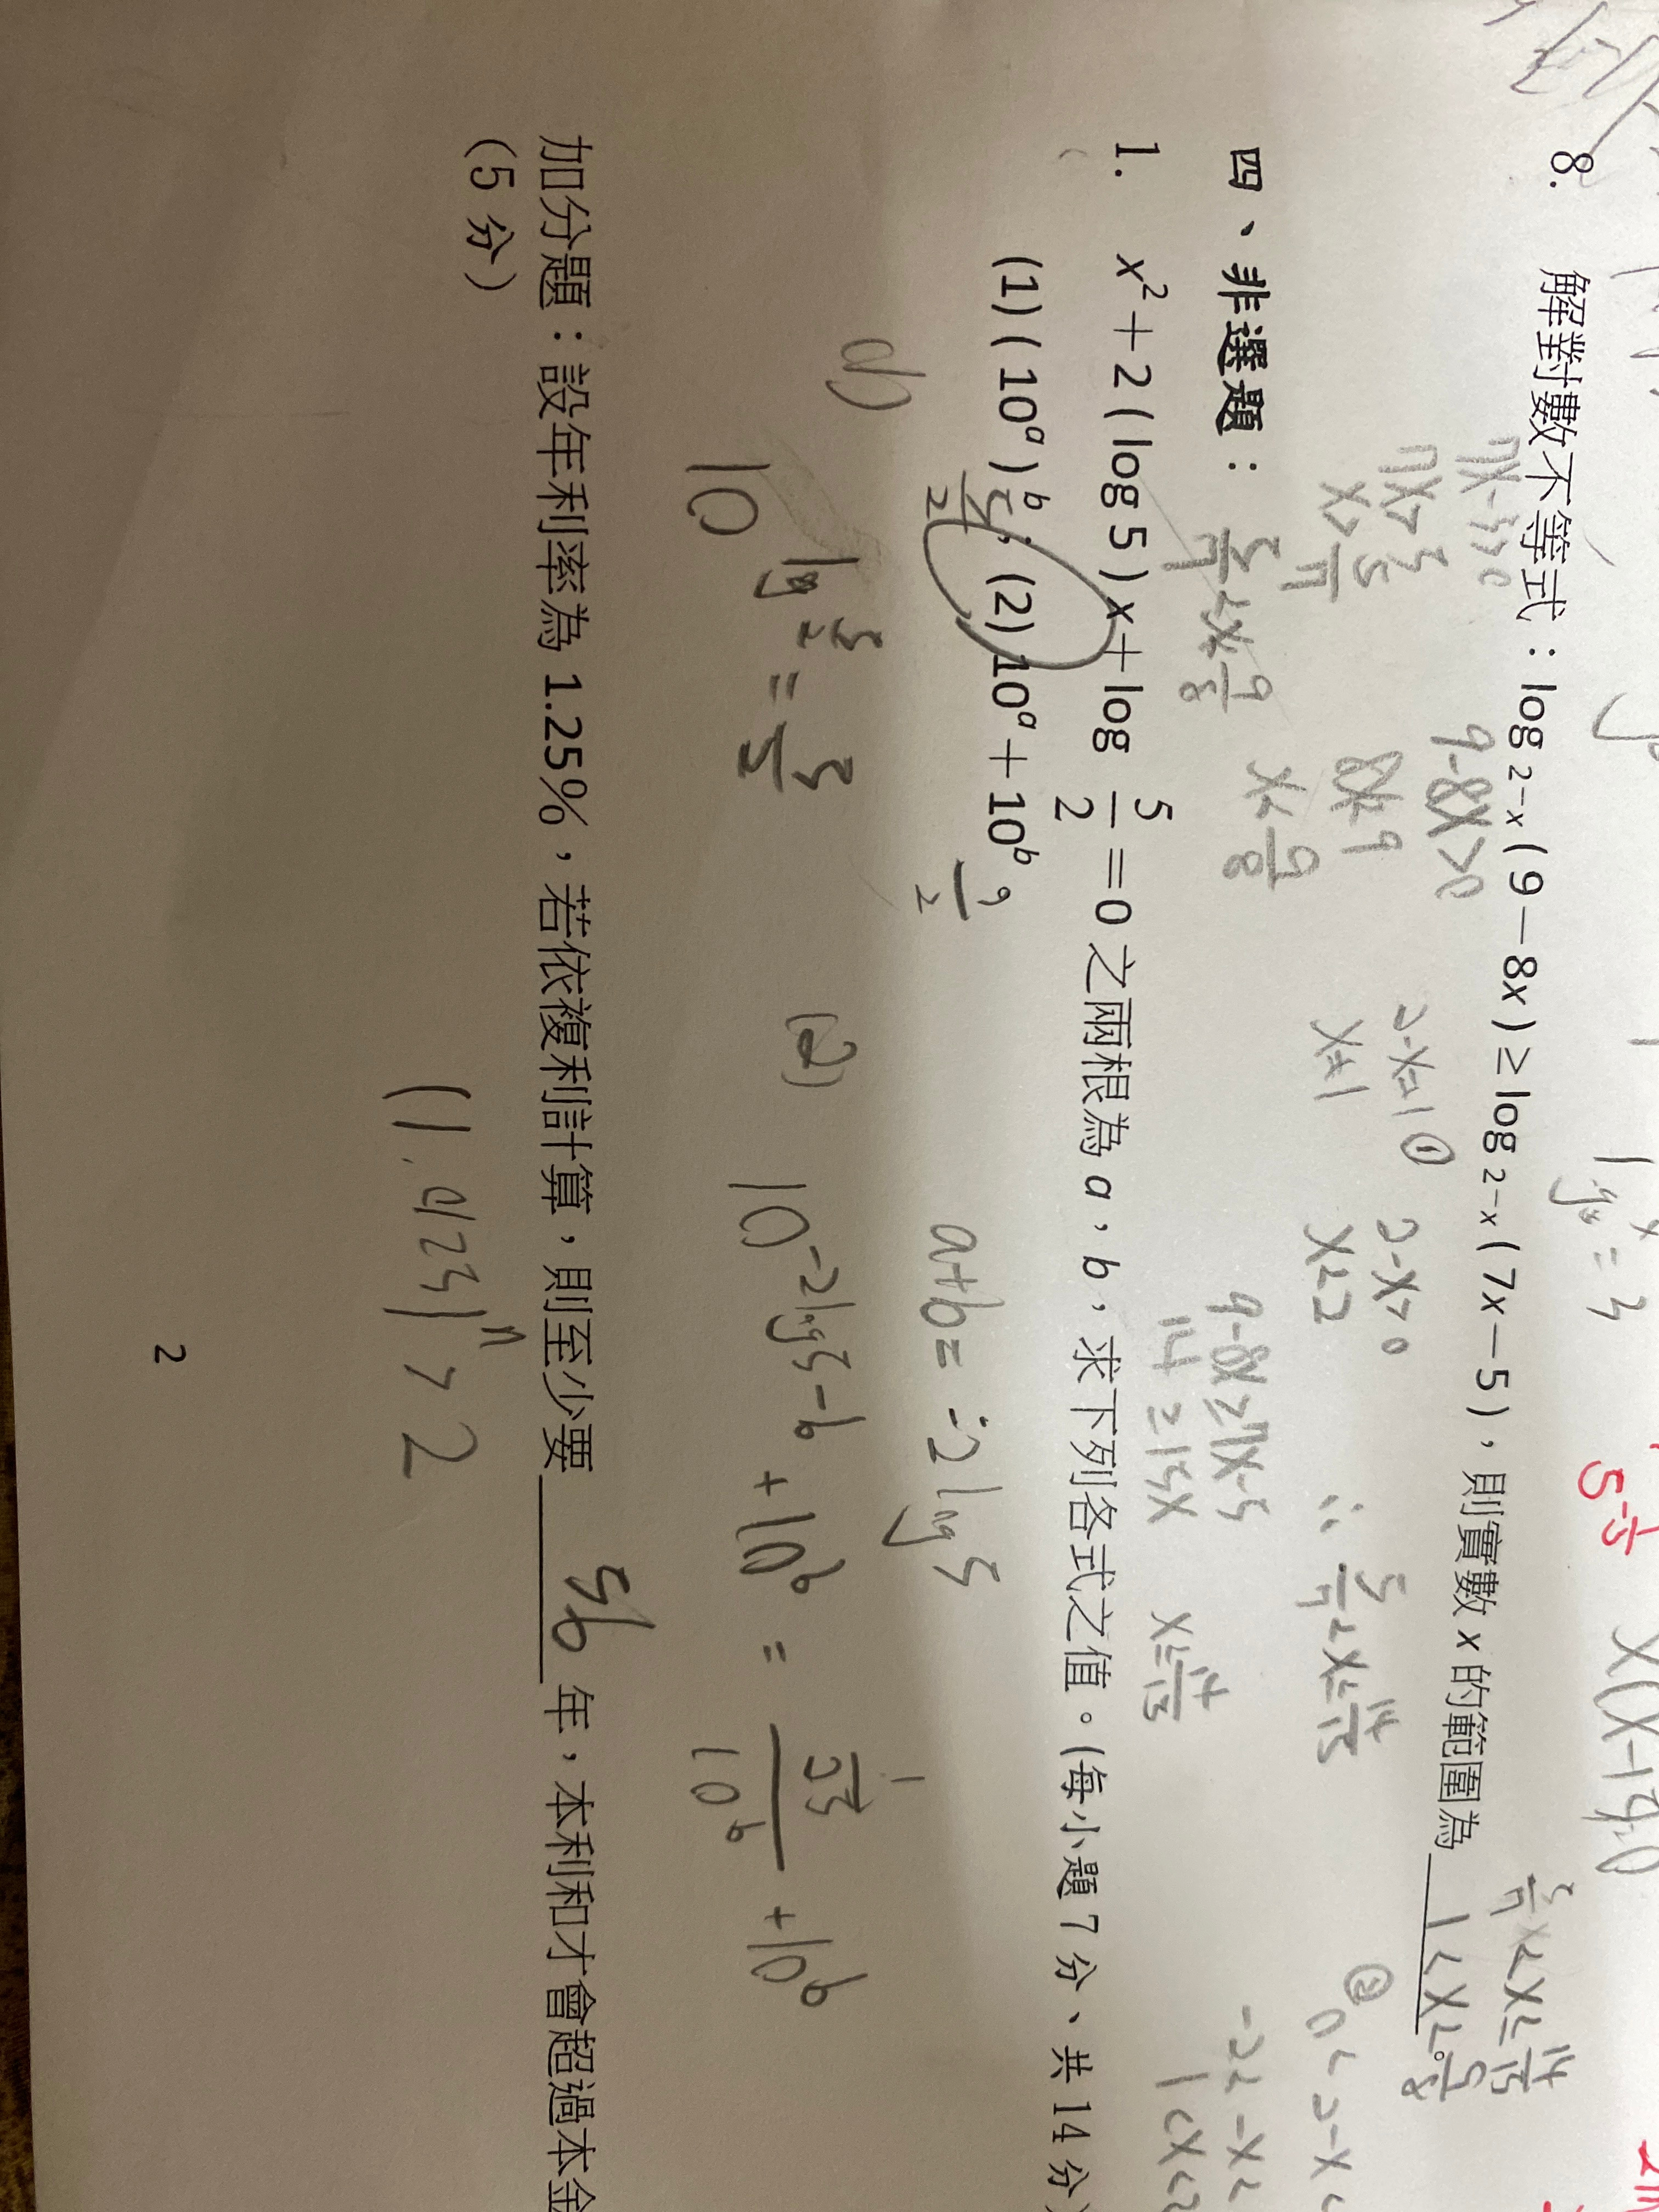 8. 解對數不等式：log 2−x (9−8x) ≥ log 2−x (7x−5)，則實數 x 的範圍為 1<x<9/8。
5/7<x≤14/15
7x-5>0
7x>5
x>5/7
9-8x>0
8x<9
x<9/8
5/7<x<9/8
2-x≠1
x≠1
①
2-x>0
x<2
9-8x≥7x-5
14≥15x
x≤14/15
∴ 5/7<x≤14/15
②
1<x<2
四、非選題：
1. x²+2(log 5)x+log 5/2=0 之兩根為 a，b，求下列各式之值。(每小題 7 分、共 14 分)
(1)(10ᵃ)ᵇ；(2)10ᵃ+10ᵇ。
5/2
a+b=-2log5
(1)
10^log 5/2 = 5/2
(2)
10^(-2log5-b) + 10^b = (1/25)/10^b + 10^b
加分題：設年利率為 1.25%，若依複利計算，則至少要 56 年，本利和才會超過本金
(5 分)
(1.0125)ⁿ>2
2